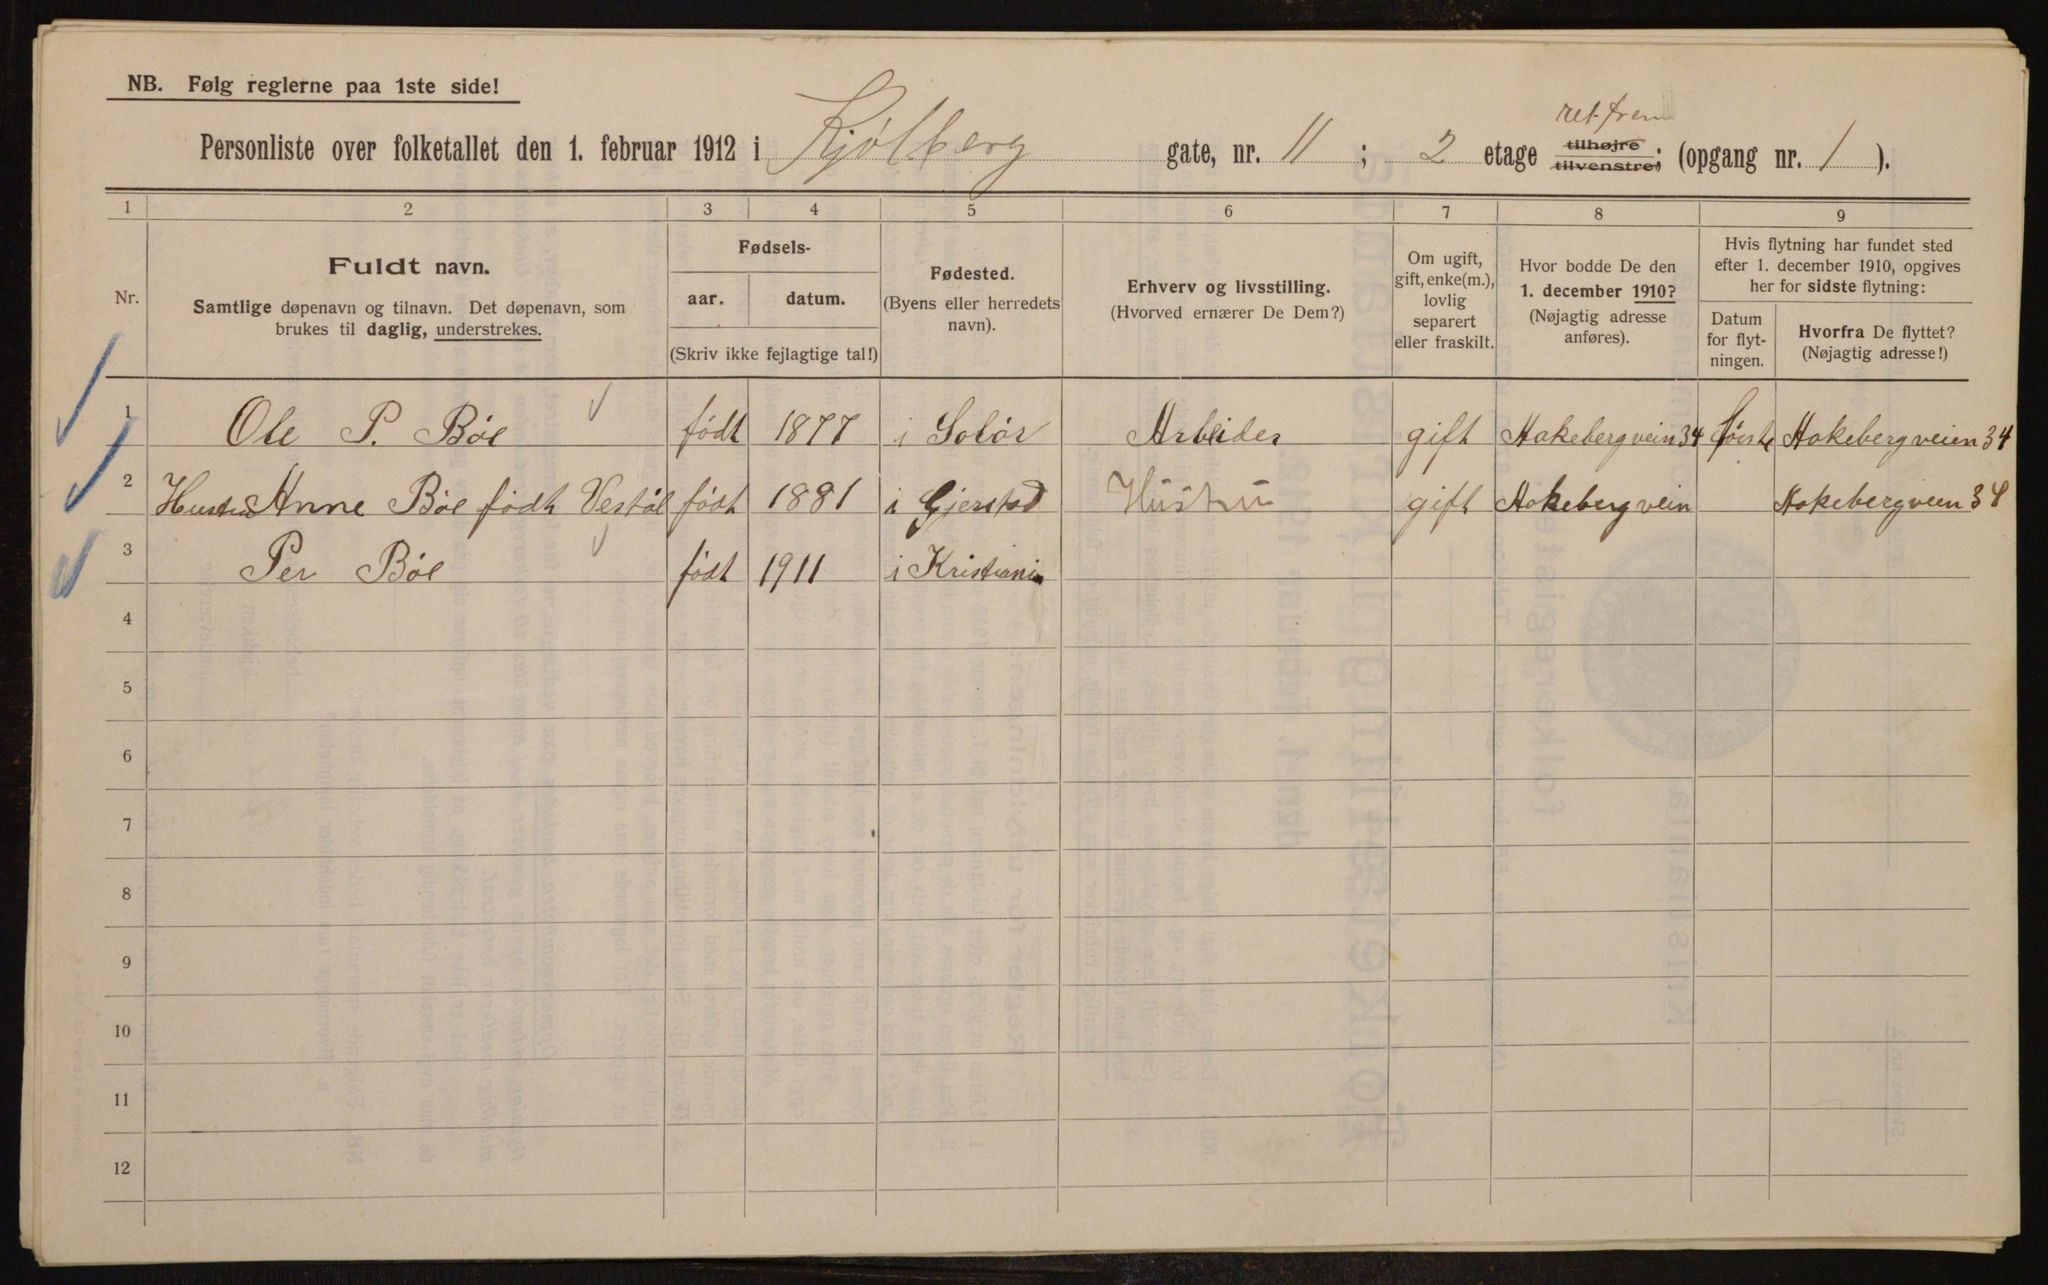 NB. Følg reglerne paa 1ste side!
ret frem
Personliste over folketallet den 1. februar 1912 i Kjølberg gate, nr. 11 ; 2 etage tilhøjre tilvenstre; (opgang nr. 1 ).
1 2 3 4 5 6 7 8 9
Nr.
Fuldt navn.
Samtlige døpenavn og tilnavn. Det døpenavn, som
brukes til daglig, understrekes.
Fødsels-
aar. datum.
(Skriv ikke fejlagtige tal!)
Fødested.
(Byens eller herredets
navn).
Erhverv og livsstilling.
(Hvorved ernærer De Dem?)
Om ugift,
gift, enke(m.),
lovlig
separert
eller fraskilt.
Hvor bodde De den
1. december 1910?
(Nøjagtig adresse
anføres).
Hvis flytning har fundet sted
efter 1. december 1910, opgives
her for sidste flytning:
Datum
for flyt-
ningen.
Hvorfra De flyttet?
(Nøjagtig adresse!)
1 Ole P. Böe födt 1877 i Solör Arbeider gift Hakeberg vein 34 Hakeberg veien 34
2 Anne Böe födt Vestöl födt 1881 i Gjerstad Hüstru gift Hakeberg vein Hakeberg veien 34
3 Per Böe födt 1911 i Kristiania
4
5
6
7
8
9
10
11
12